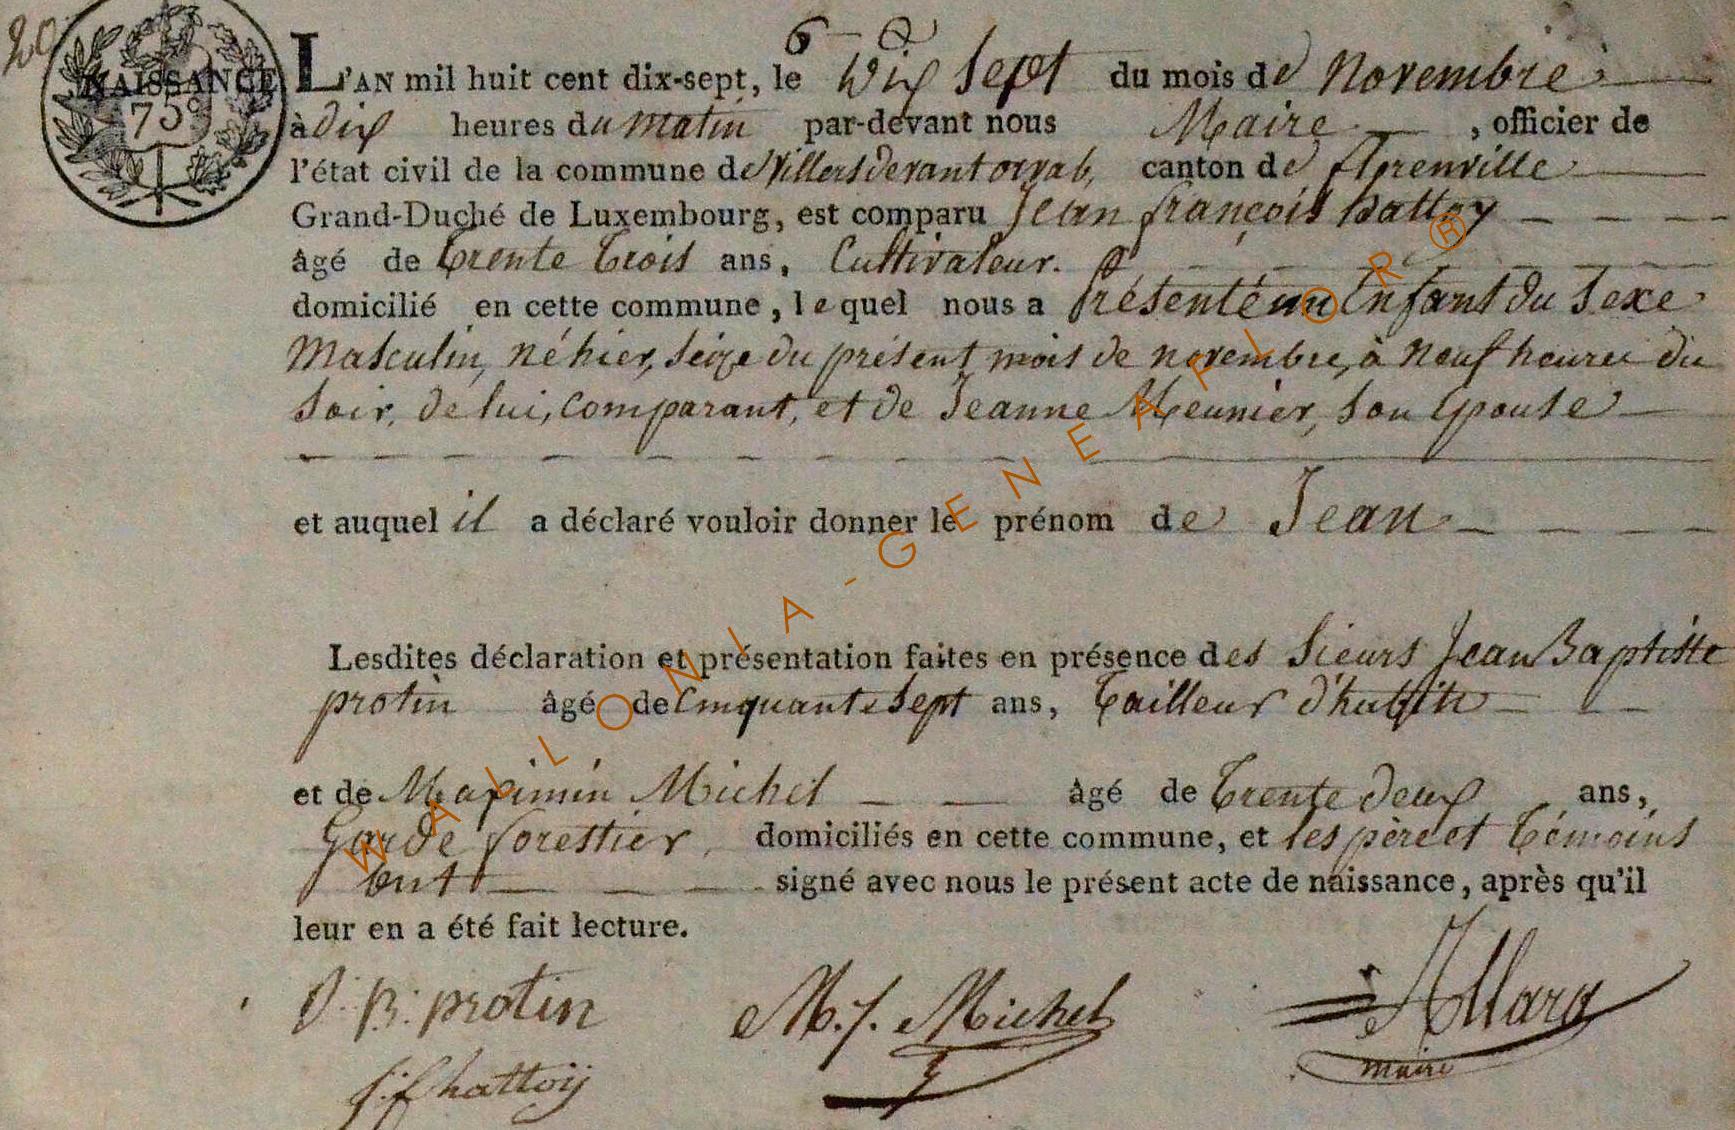 20
NAISSANCE
75c
6
L'AN mil huit cent dix-sept, le Dix Sept du mois de Novembre
à dix heures du matin par-devant nous Maire, officier de
l'état civil de la commune de Villers devant orval, canton de florenville
Grand-Duché de Luxembourg, est comparu Jean françois hattoy
âgé de trente trois ans, Cultivateur.
domicilié en cette commune, lequel nous a Présenté un Enfant du Sexe
Masculin, né hier, Seize du présent mois de novembre, à neuf heures du
Soir, de lui, Comparant, et de Jeanne Meunier, Son Epouse
et auquel il a déclaré vouloir donner le prénom de Jean
Lesdites déclaration et présentation faites en présence des Sieurs Jean Baptiste
protin âgé de Cinquante Sept ans, Tailleur d'habits
et de Maximin Michel âgé de Trente deux ans,
Garde forestier, domiciliés en cette commune, et les père et Témoins
ont signé avec nous le présent acte de naissance, après qu'il
leur en a été fait lecture.
J: B: protin M. J. Michel Allard
maire
j: f hattoij
WALLONIA-GENEAPIOR®